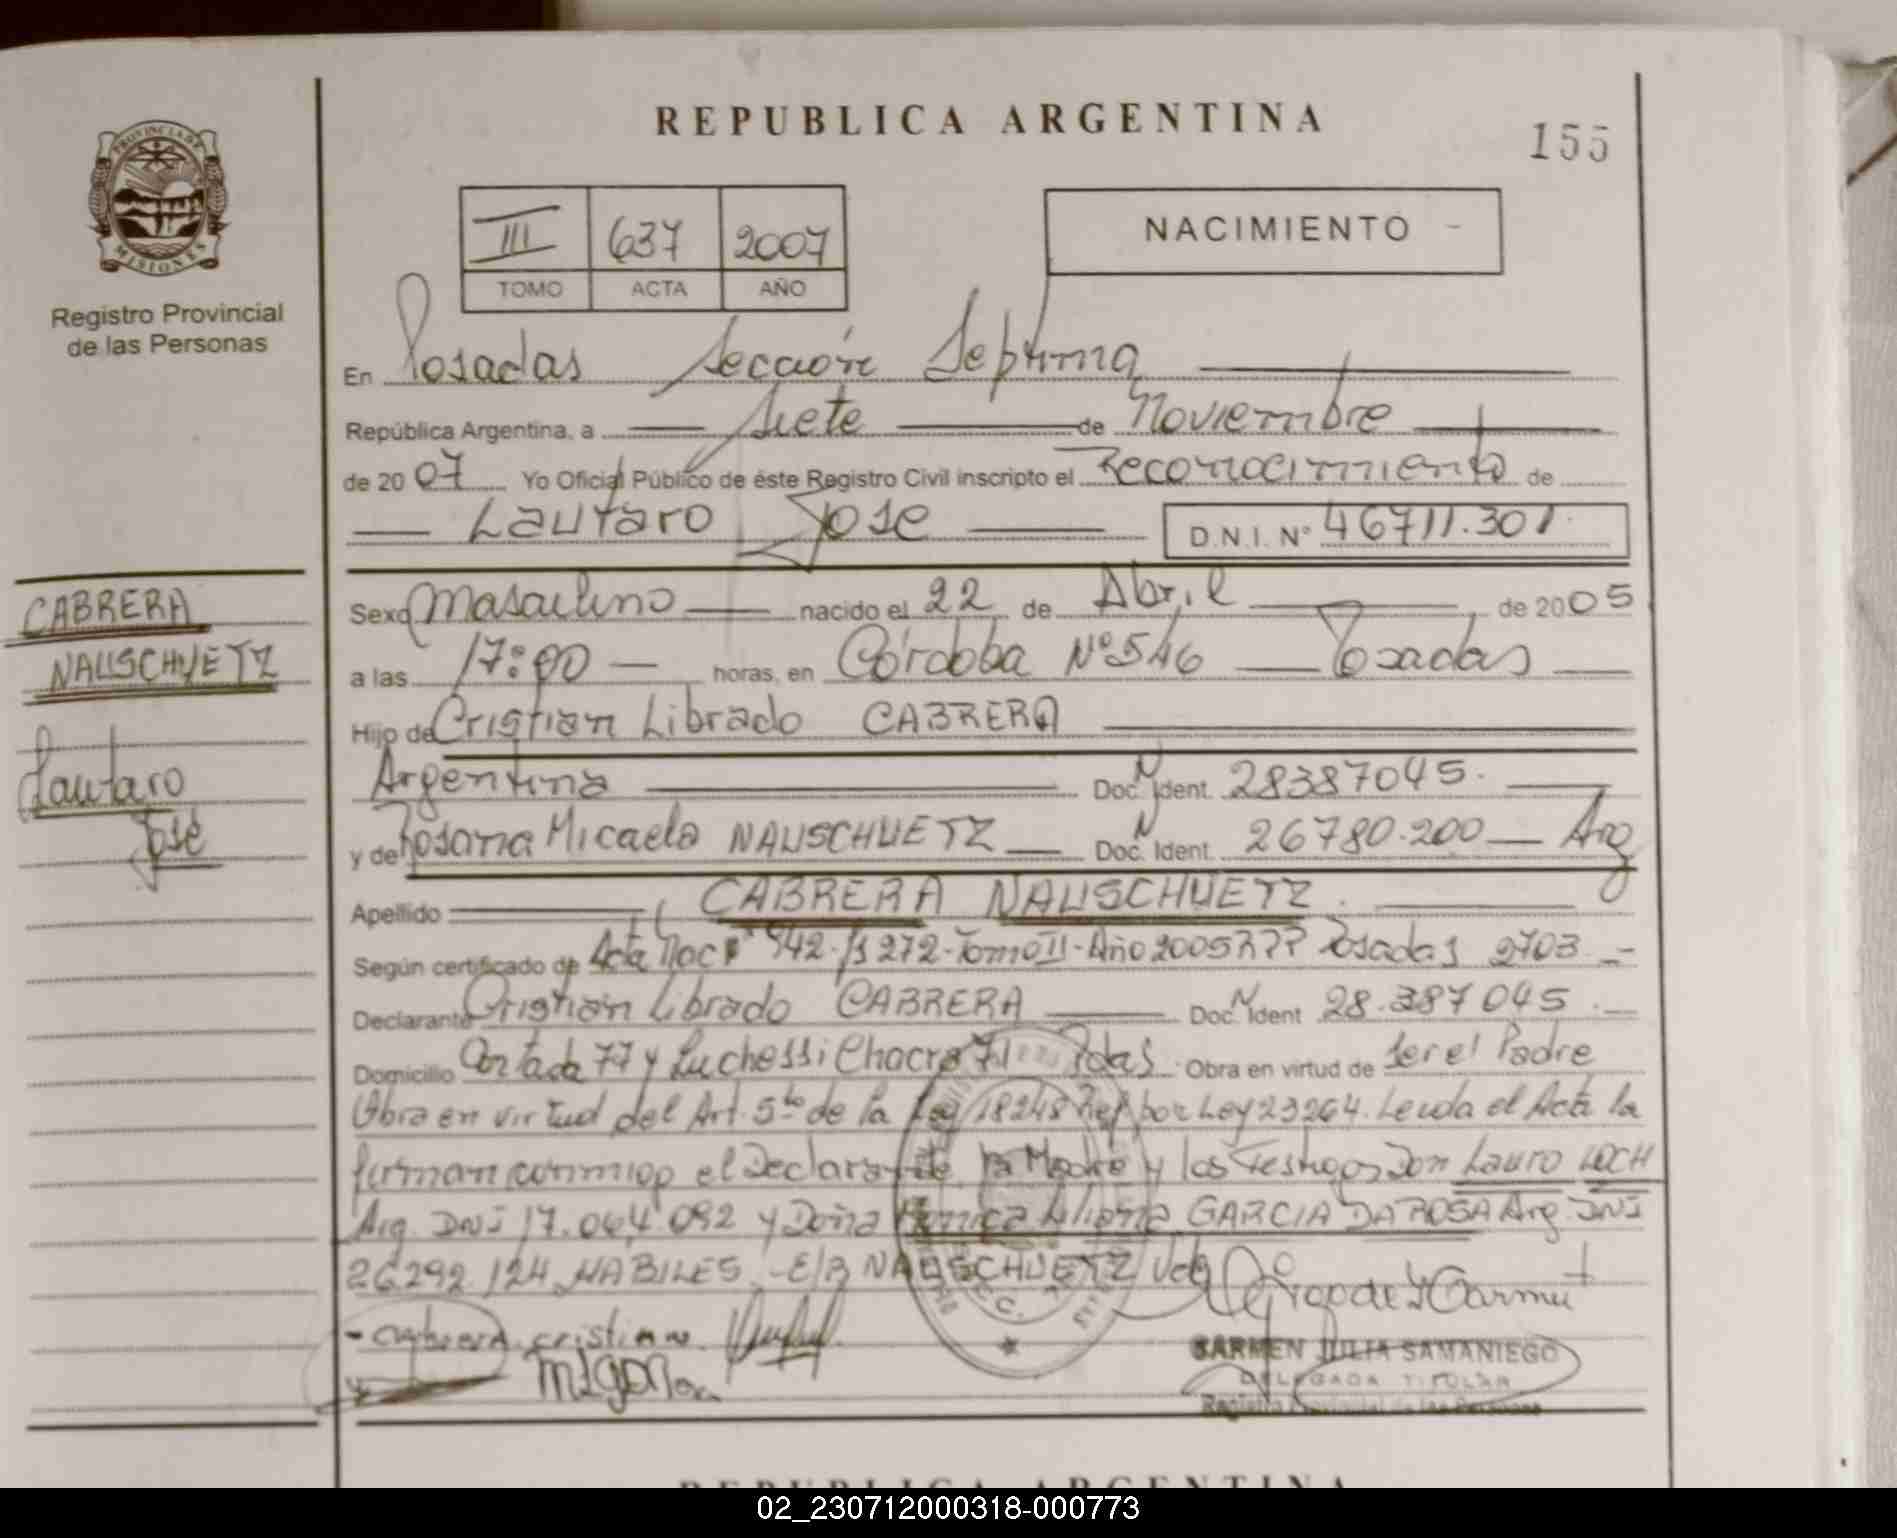 REPUBLICA ARGENTINA
155
PROVINCIA DE
MISIONES
Registro Provincial
de las Personas
III 637 2007
TOMO ACTA AÑO
NACIMIENTO -
En Posadas Sección Septima
República Argentina, a Siete de Noviembre
de 2007 Yo Oficial Público de éste Registro Civil inscripto el Reconocimiento de
Lautaro Jose D.N.I. Nº 46711.301.
CABRERA
NAUSCHUETZ
Lautaro
José
Sexo Masculino nacido el 22 de Abril de 2005
a las 17:00 horas, en Córdoba Nº 546 Posadas
Hijo de Cristian Librado CABRERA
Argentina Doc. Ident. 28387045.
y de Rosana Micaela NAUSCHUETZ Doc. Ident. 26780.200 Arg
Apellido CABRERA NAUSCHUETZ.
Según certificado de Acta Nac 942-Fs 272-Tomo II-Año 2005 Posadas 2703.-
Declarante Cristian Librado CABRERA Doc. Ident 28.387 045.
Domicilio Cortada 77 y Luchessi Chacra 71 Pdas. Obra en virtud de ser el Padre
Obra en virtud del Art. 5to de la Ley 18248 Ref por Ley 23264. Leida el Acta la
firman conmigo el Declarante, la Madre y los Testigos Don Lauro LOCH
Arg. DNI 17.064 092 y Doña Monica Liliana GARCIA DA ROSA Arg. DNI
26.292.124 HABILES.-E/R NAUSCHUETZ Vale
- cabrera. cristian.
CARMEN JULIA SAMANIEGO
DELEGADA TITULAR
Registro Provincial de las Personas
REPUBLICA ARGENTINA
02_230712000318-000773